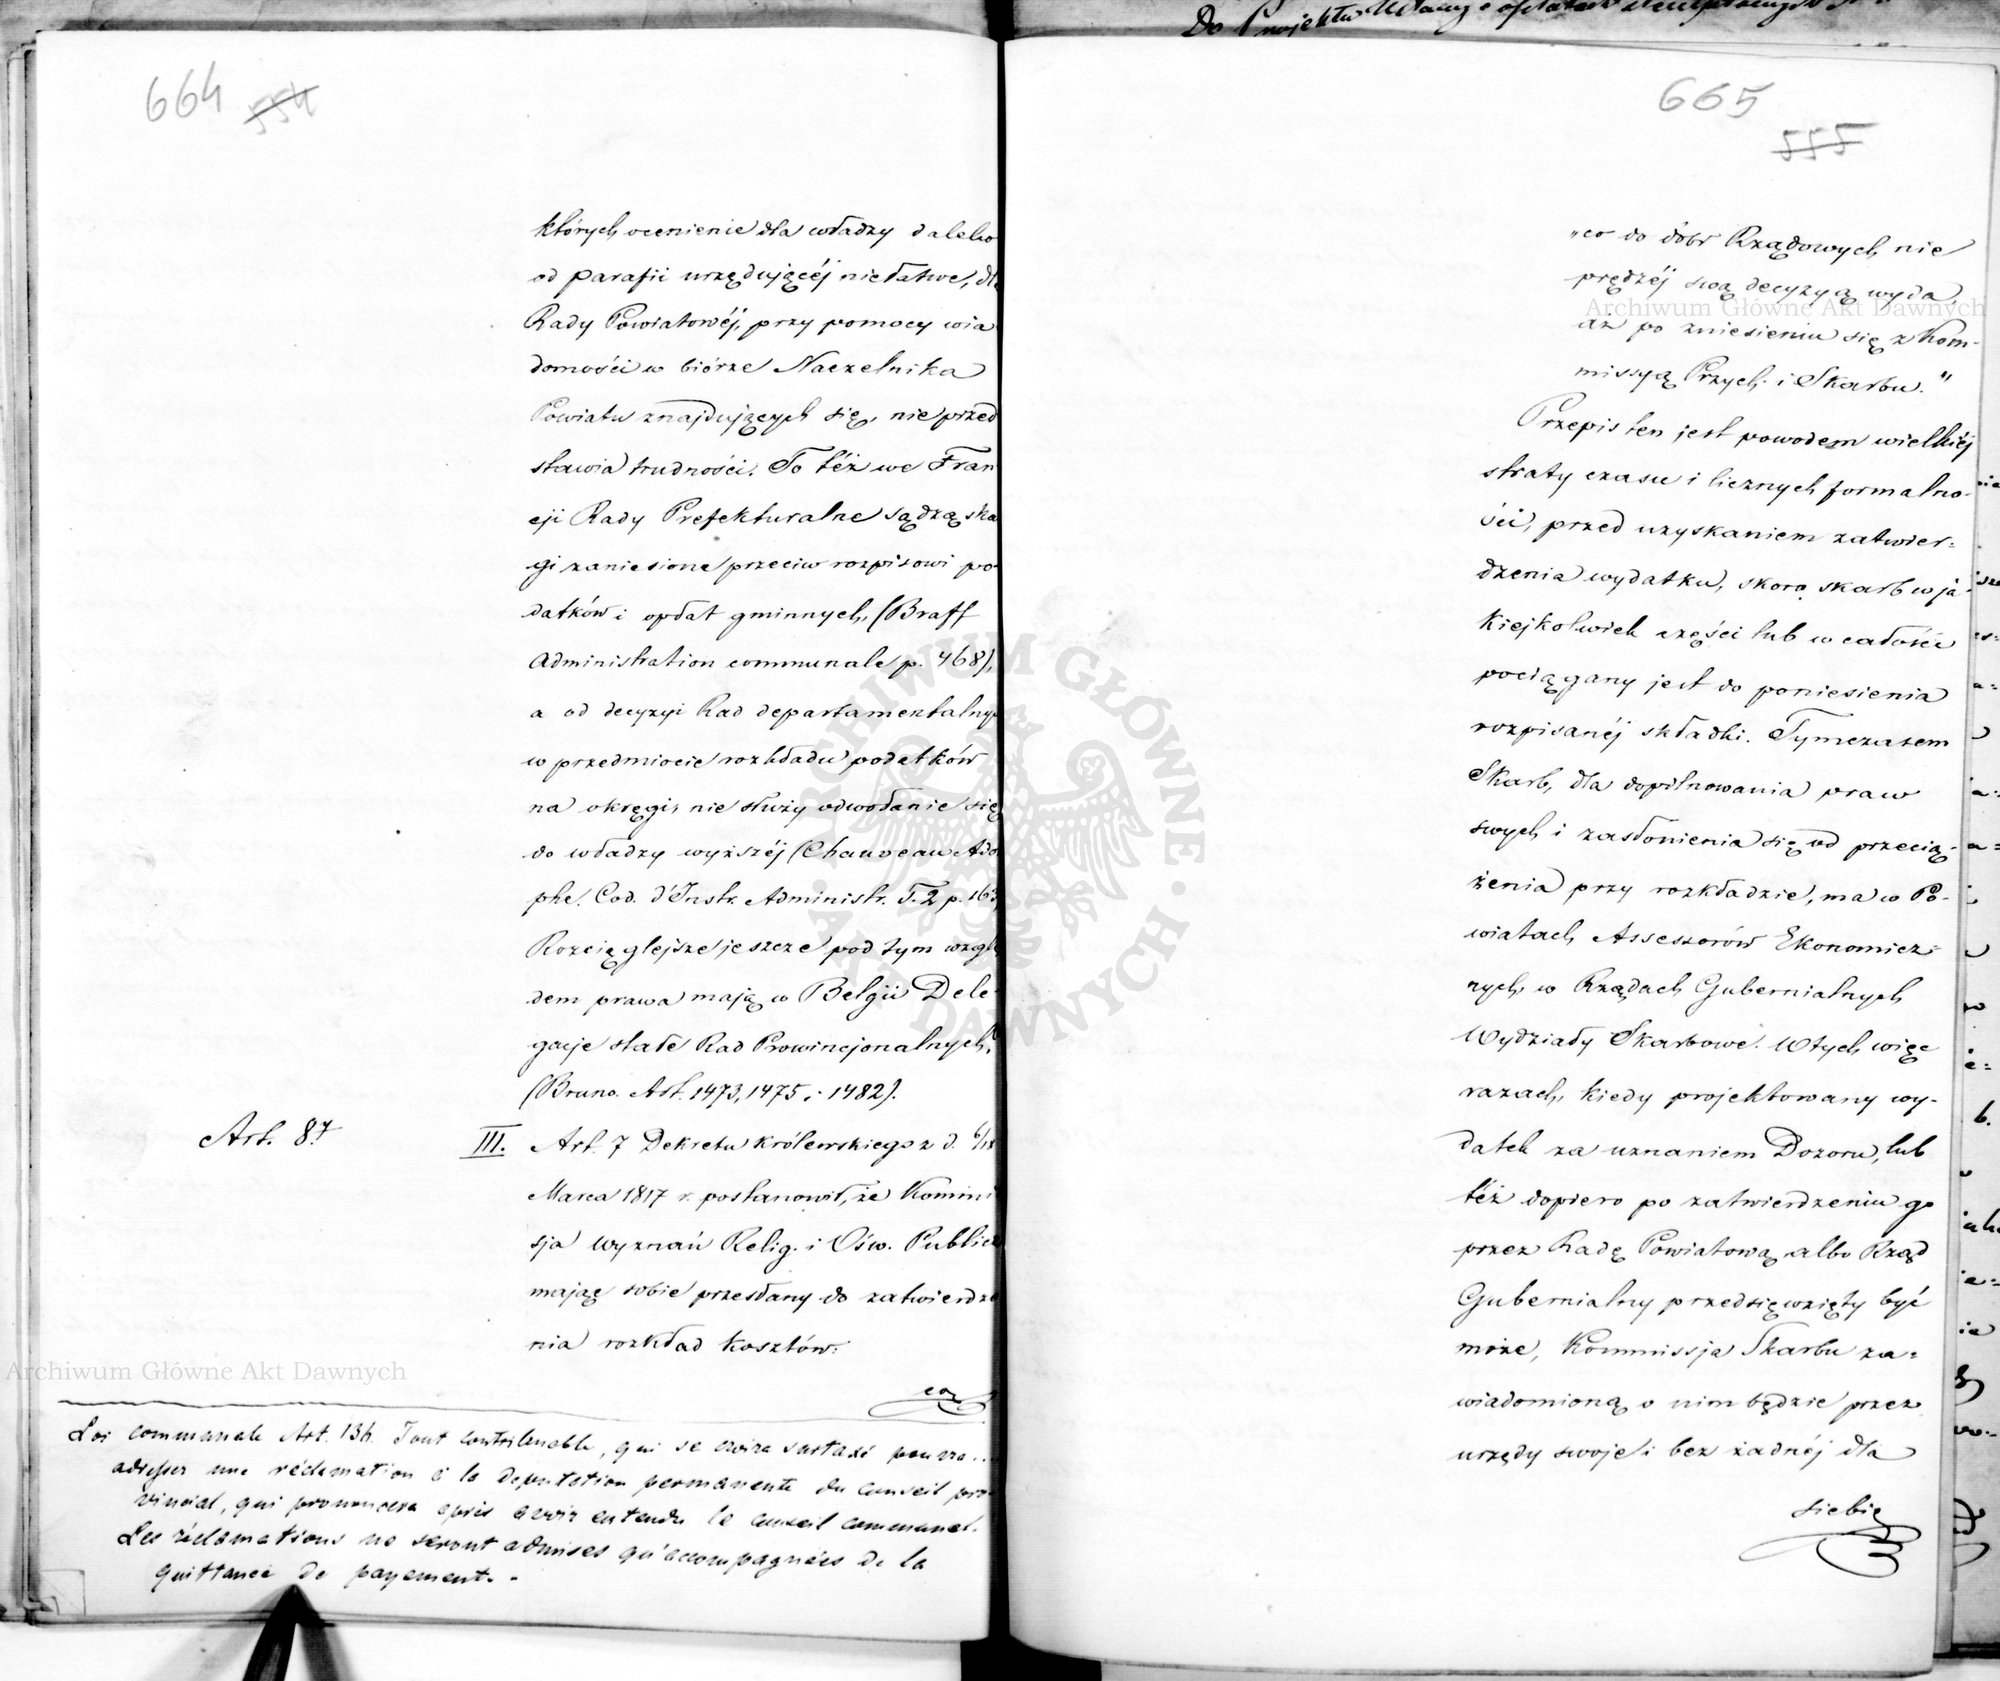 664 554
których ocenienie dla władzy daleko
od parafii urzędującéj niełatwe, dla
Rady Powiatowéj, przy pomocy wia
domości w biórze Naczelnika
Powiatu znajdujących się, nie przed
stawia trudności. To téż we Fran
cji Rady Prefekturalne sądzą ska
gi zaniesione przeciw rozpisowi po
datków i opłat gminnych, (Braff
Administration communale p. 468),
a od decyzyi Rad departamentalnych
w przedmiocie rozkładu podatków
na okręgi, nie służy odwołanie się
do władzy wyższéj (Chauveau Ado
phe. Cod. d'Instr. Administr. T. 2 p. 163
Rozciąglejsze jeszcze pod tym wzglę
dem prawa mają w Belgii Dele-
gacje stałe Rad Prowincjonalnych,
(Bruno. Art. 1473, 1475 i 1482).
Art. 87
III. Art. 7 Dekretu Królewskiego z d. 6/18
Marca 1817 r. postanowił, że Kommi
sja Wyznań Relig. i Ośw. Public
mając sobie przesłany do zatwierdze
nia rozkład kosztów:
"co
Loi communale Art. 136. Tout contribuable, qui se croira surtaxé pourra..
adresser une réclamation à la deputation permanente du conseil pro-
vincial, qui prononcera après avoir entendu le conseil communal.
Les réclamations ne seront admises qu'accompagnées de la
quittance de payement. -
Do Projektu Ustawy o opłatach
665
555
"co do dóbr Rządowych, nie
prędzéj swą decyzyą wyda,
aż po zniesieniu się z Kom-
missyą Przych. i Skarbu."
Przepis ten jest powodem wielkiéj
straty czasu i licznych formalno-
ści, przed uzyskaniem zatwier-
dzenia wydatku, skoro skarb w ja-
kiejkolwiek części lub w całości
pociągany jest do poniesienia
rozpisanéj składki. Tymczasem
Skarb, dla dopilnowania praw
swych i zasłonienia się od przecią-
żenia przy rozkładzie, ma w Po-
wiatach Assessorów Ekonomicz-
nych, w Rządach Gubernialnych
Wydziały Skarbowe. W tych więc
razach, kiedy projektowany wy-
datek za uznaniem Dozoru, lub
téż dopiero po zatwierdzeniu go
przez Radę Powiatową albo Rząd
Gubernialny przedsięwzięty być
może, Kommissja Skarbu za-
wiadomioną o nim będzie przez
urzędy swoje i bez żadnéj dla
siebie
Archiwum Główne Akt Dawnych
Archiwum Główne Akt Dawnych
ARCHIWUM GŁÓWNE AKT DAWNYCH